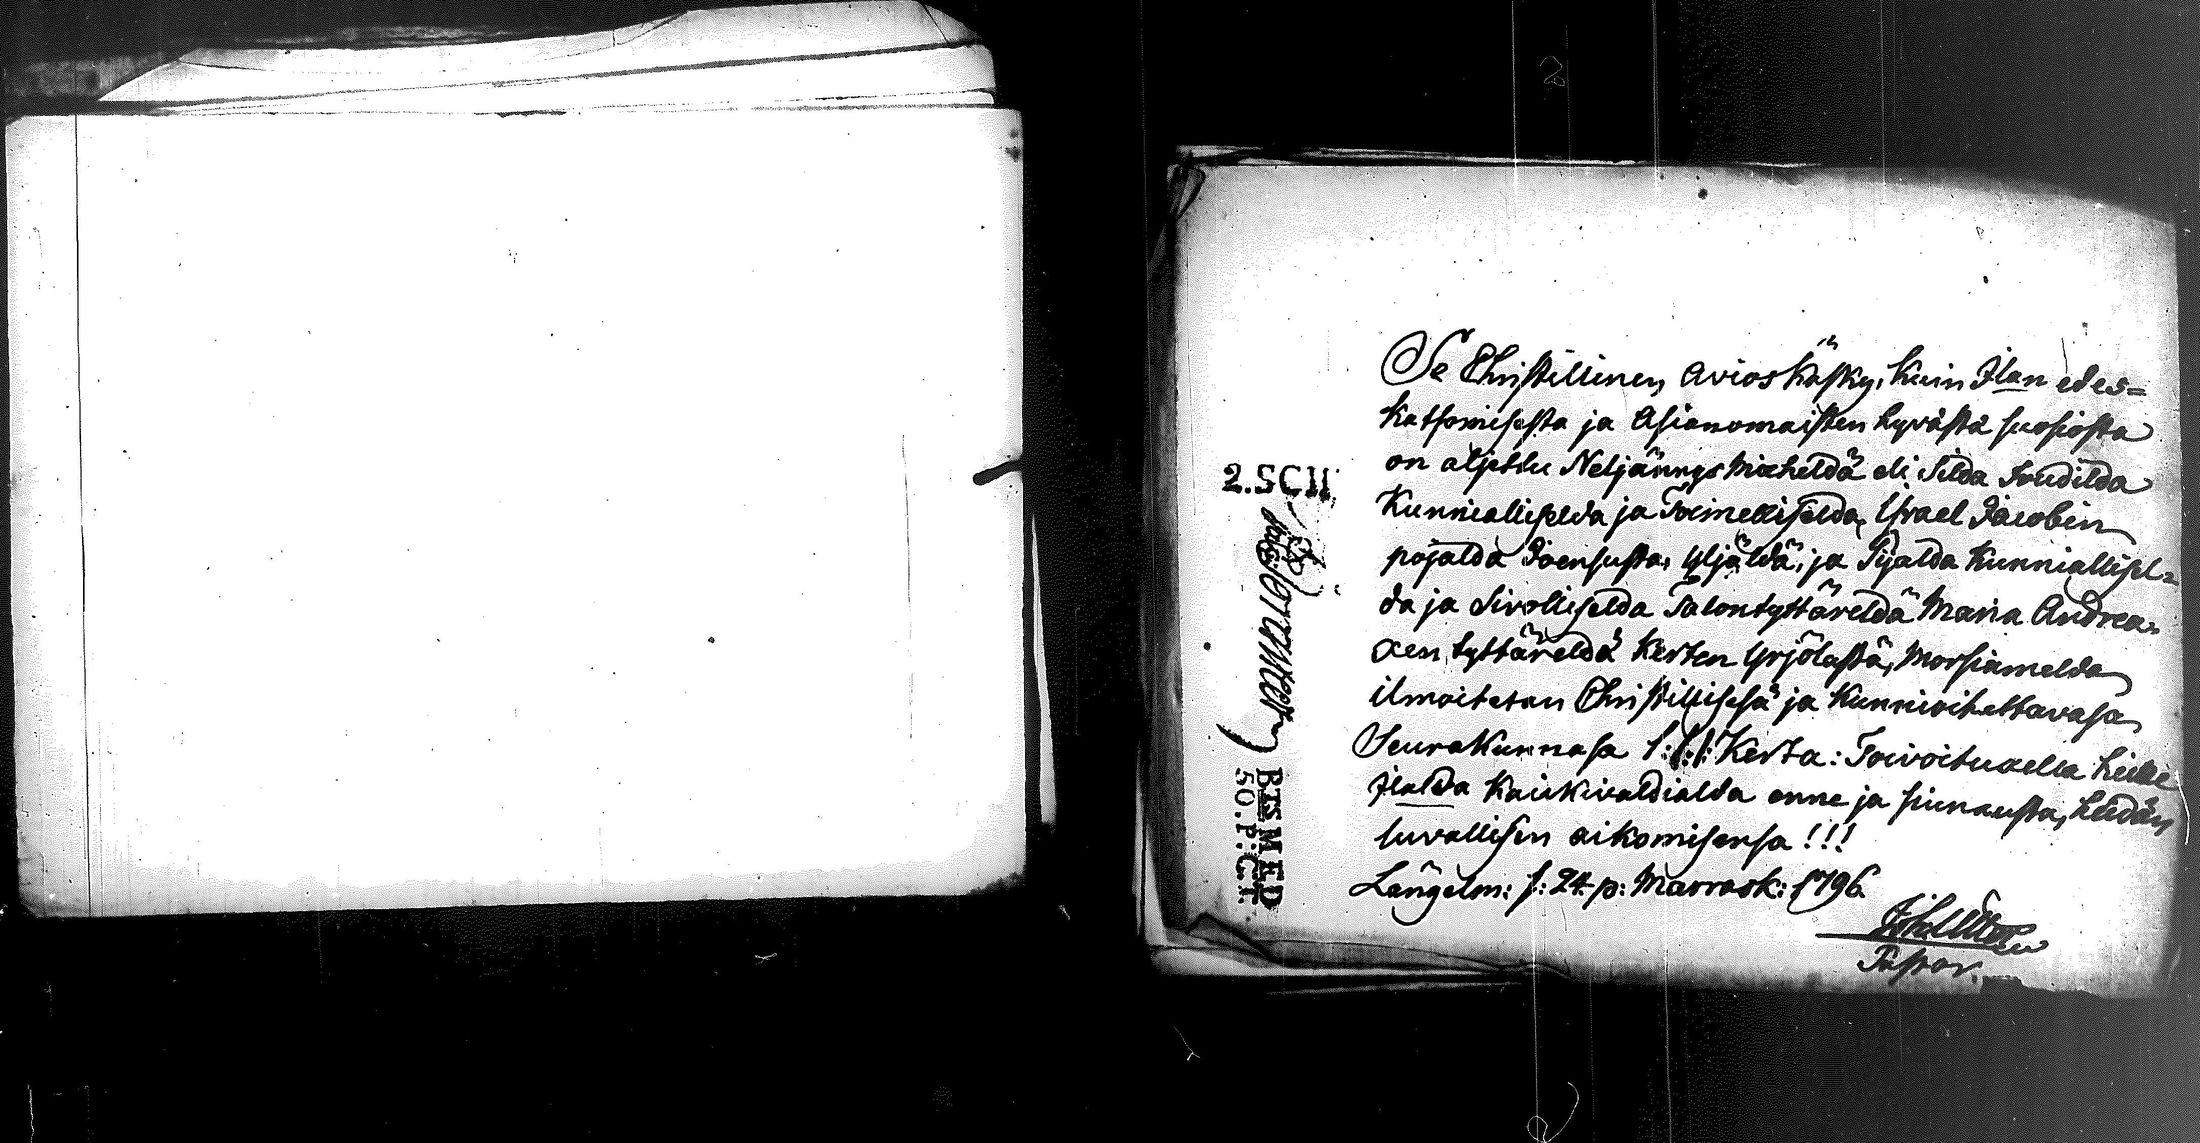 Se Christillinen Avioskäsky, kuin Ilan edes=
katsomisesta ja Asianomaisten hyvästä suosiosta
on aljettu Neljännys Mieheldä eli Silda
Kunnialliselda ja Toimelliselda, Israel Jacobin
pojalda Joensusta, Yljäldä, ja Sijalda Kunniallisel=
da ja Sivolliselda Talontyttäreldä Maria Andrea=
xen tyttäreldä Kerten Yrjölästä, Morsiamelda
ilmoitetan Christillisesä ja Kunnioitettavasa
Seurakunnasa 1:s: Kerta: Toivotuxella heille
Ilalda Kaickivaldialda onne ja siunausta, heidän
luvallisen aikomisensa !!!
Längelm: s: 24 p: Marrask: 1796
Pastor.
2.SCH
BTSMED
50.P:CT.